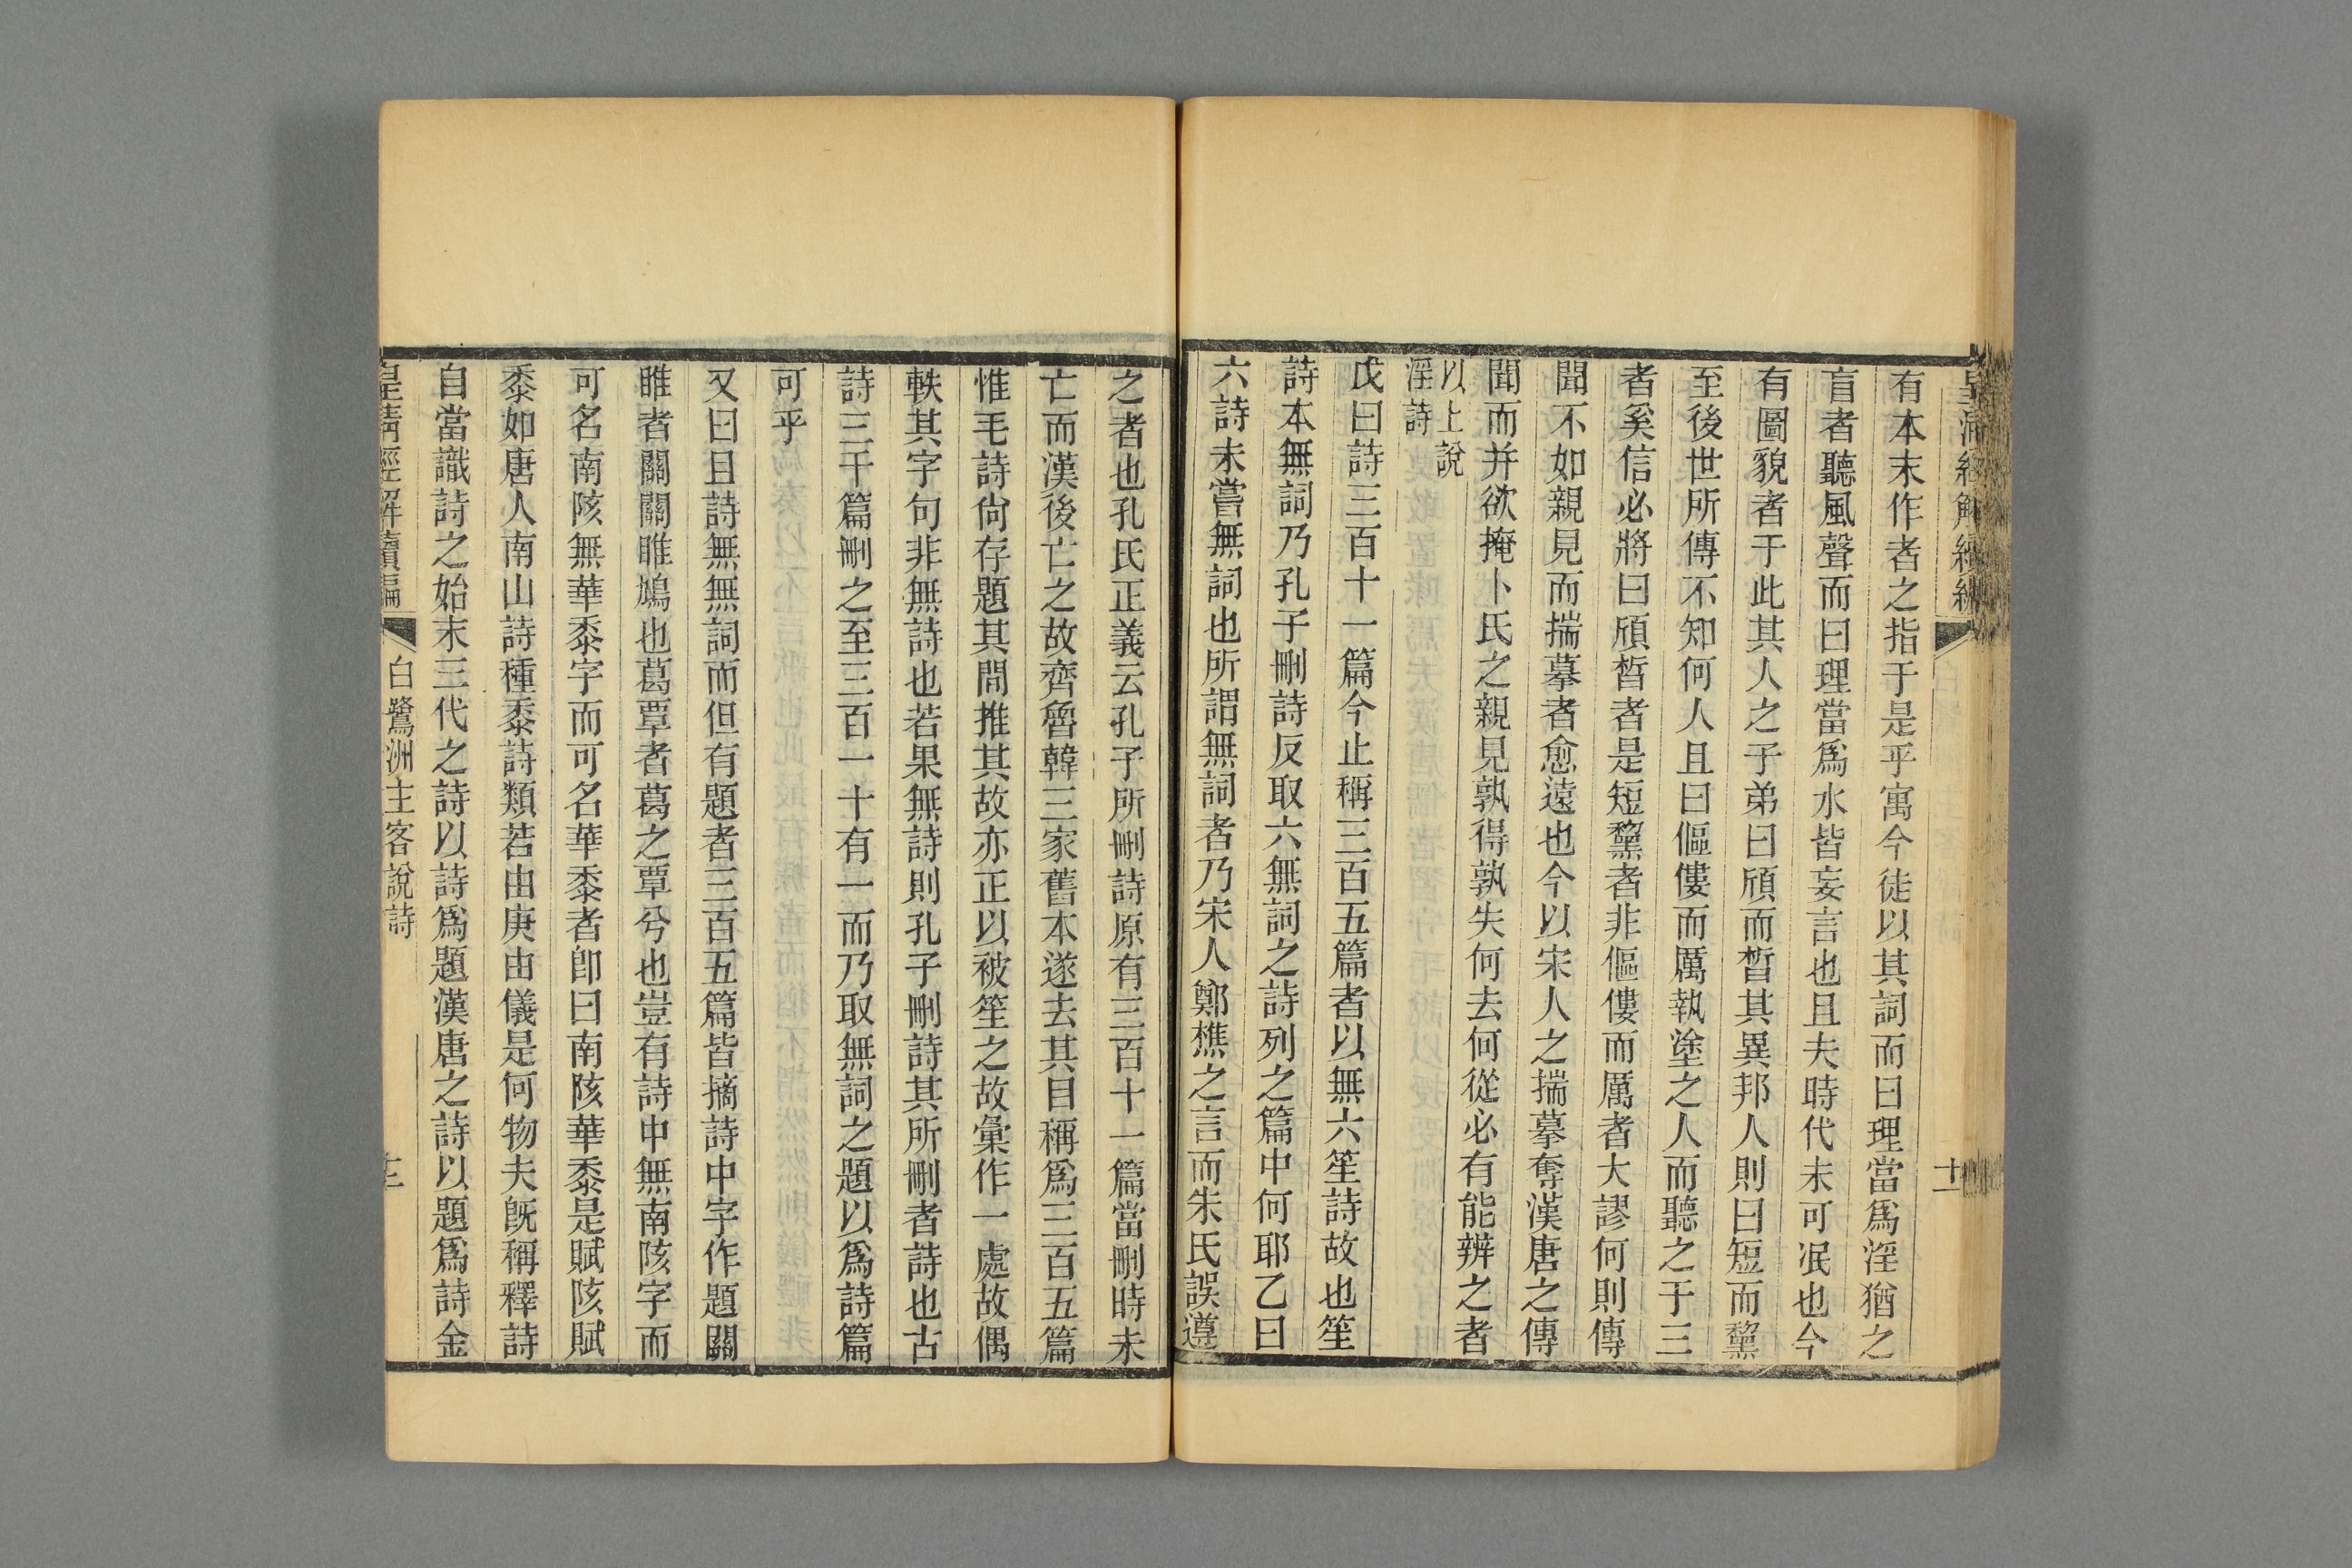 皇清經解續編
十一
有本末作者之指于是乎寓今徒以其詞而曰理當爲淫猶之
盲者聽風聲而曰理當爲水皆妄言也且夫時代未可泯也今
有圖貌者于此其人之子弟曰頎而晳其異邦人則曰短而黧
至後世所傳不知何人且曰傴僂而厲執塗之人而聽之于三
者奚信必將曰頎晳者是短黧者非傴僂而厲者大謬何則傳
聞不如親見而揣摹者愈遠也今以宋人之揣摹奪漢唐之傳
聞而并欲掩卜氏之親見孰得孰失何去何從必有能辨之者
以上說
淫詩
戊曰詩三百十一篇今止稱三百五篇者以無六笙詩故也笙
詩本無詞乃孔子刪詩反取六無詞之詩列之篇中何耶乙曰
六詩未嘗無詞也所謂無詞者乃宋人鄭樵之言而朱氏誤遵
之者也孔氏正義云孔子所刪詩原有三百十一篇當刪時未
亡而漢後亡之故齊魯韓三家舊本遂去其目稱爲三百五篇
惟毛詩尙存題其間推其故亦正以被笙之故彙作一處故偶
軼其字句非無詩也若果無詩則孔子刪詩其所刪者詩也古
詩三千篇刪之至三百一十有一而乃取無詞之題以爲詩篇
可乎
又曰且詩無無詞而但有題者三百五篇皆摘詩中字作題關
雎者關關雎鳩也葛覃者葛之覃兮也豈有詩中無南陔字而
可名南陔無華黍字而可名華黍者卽曰南陔華黍是賦陔賦
黍如唐人南山詩種黍詩類若由庚由儀是何物夫旣稱釋詩
自當識詩之始末三代之詩以詩爲題漢唐之詩以題爲詩金
皇清經解續編
白鷺洲主客說詩
十二